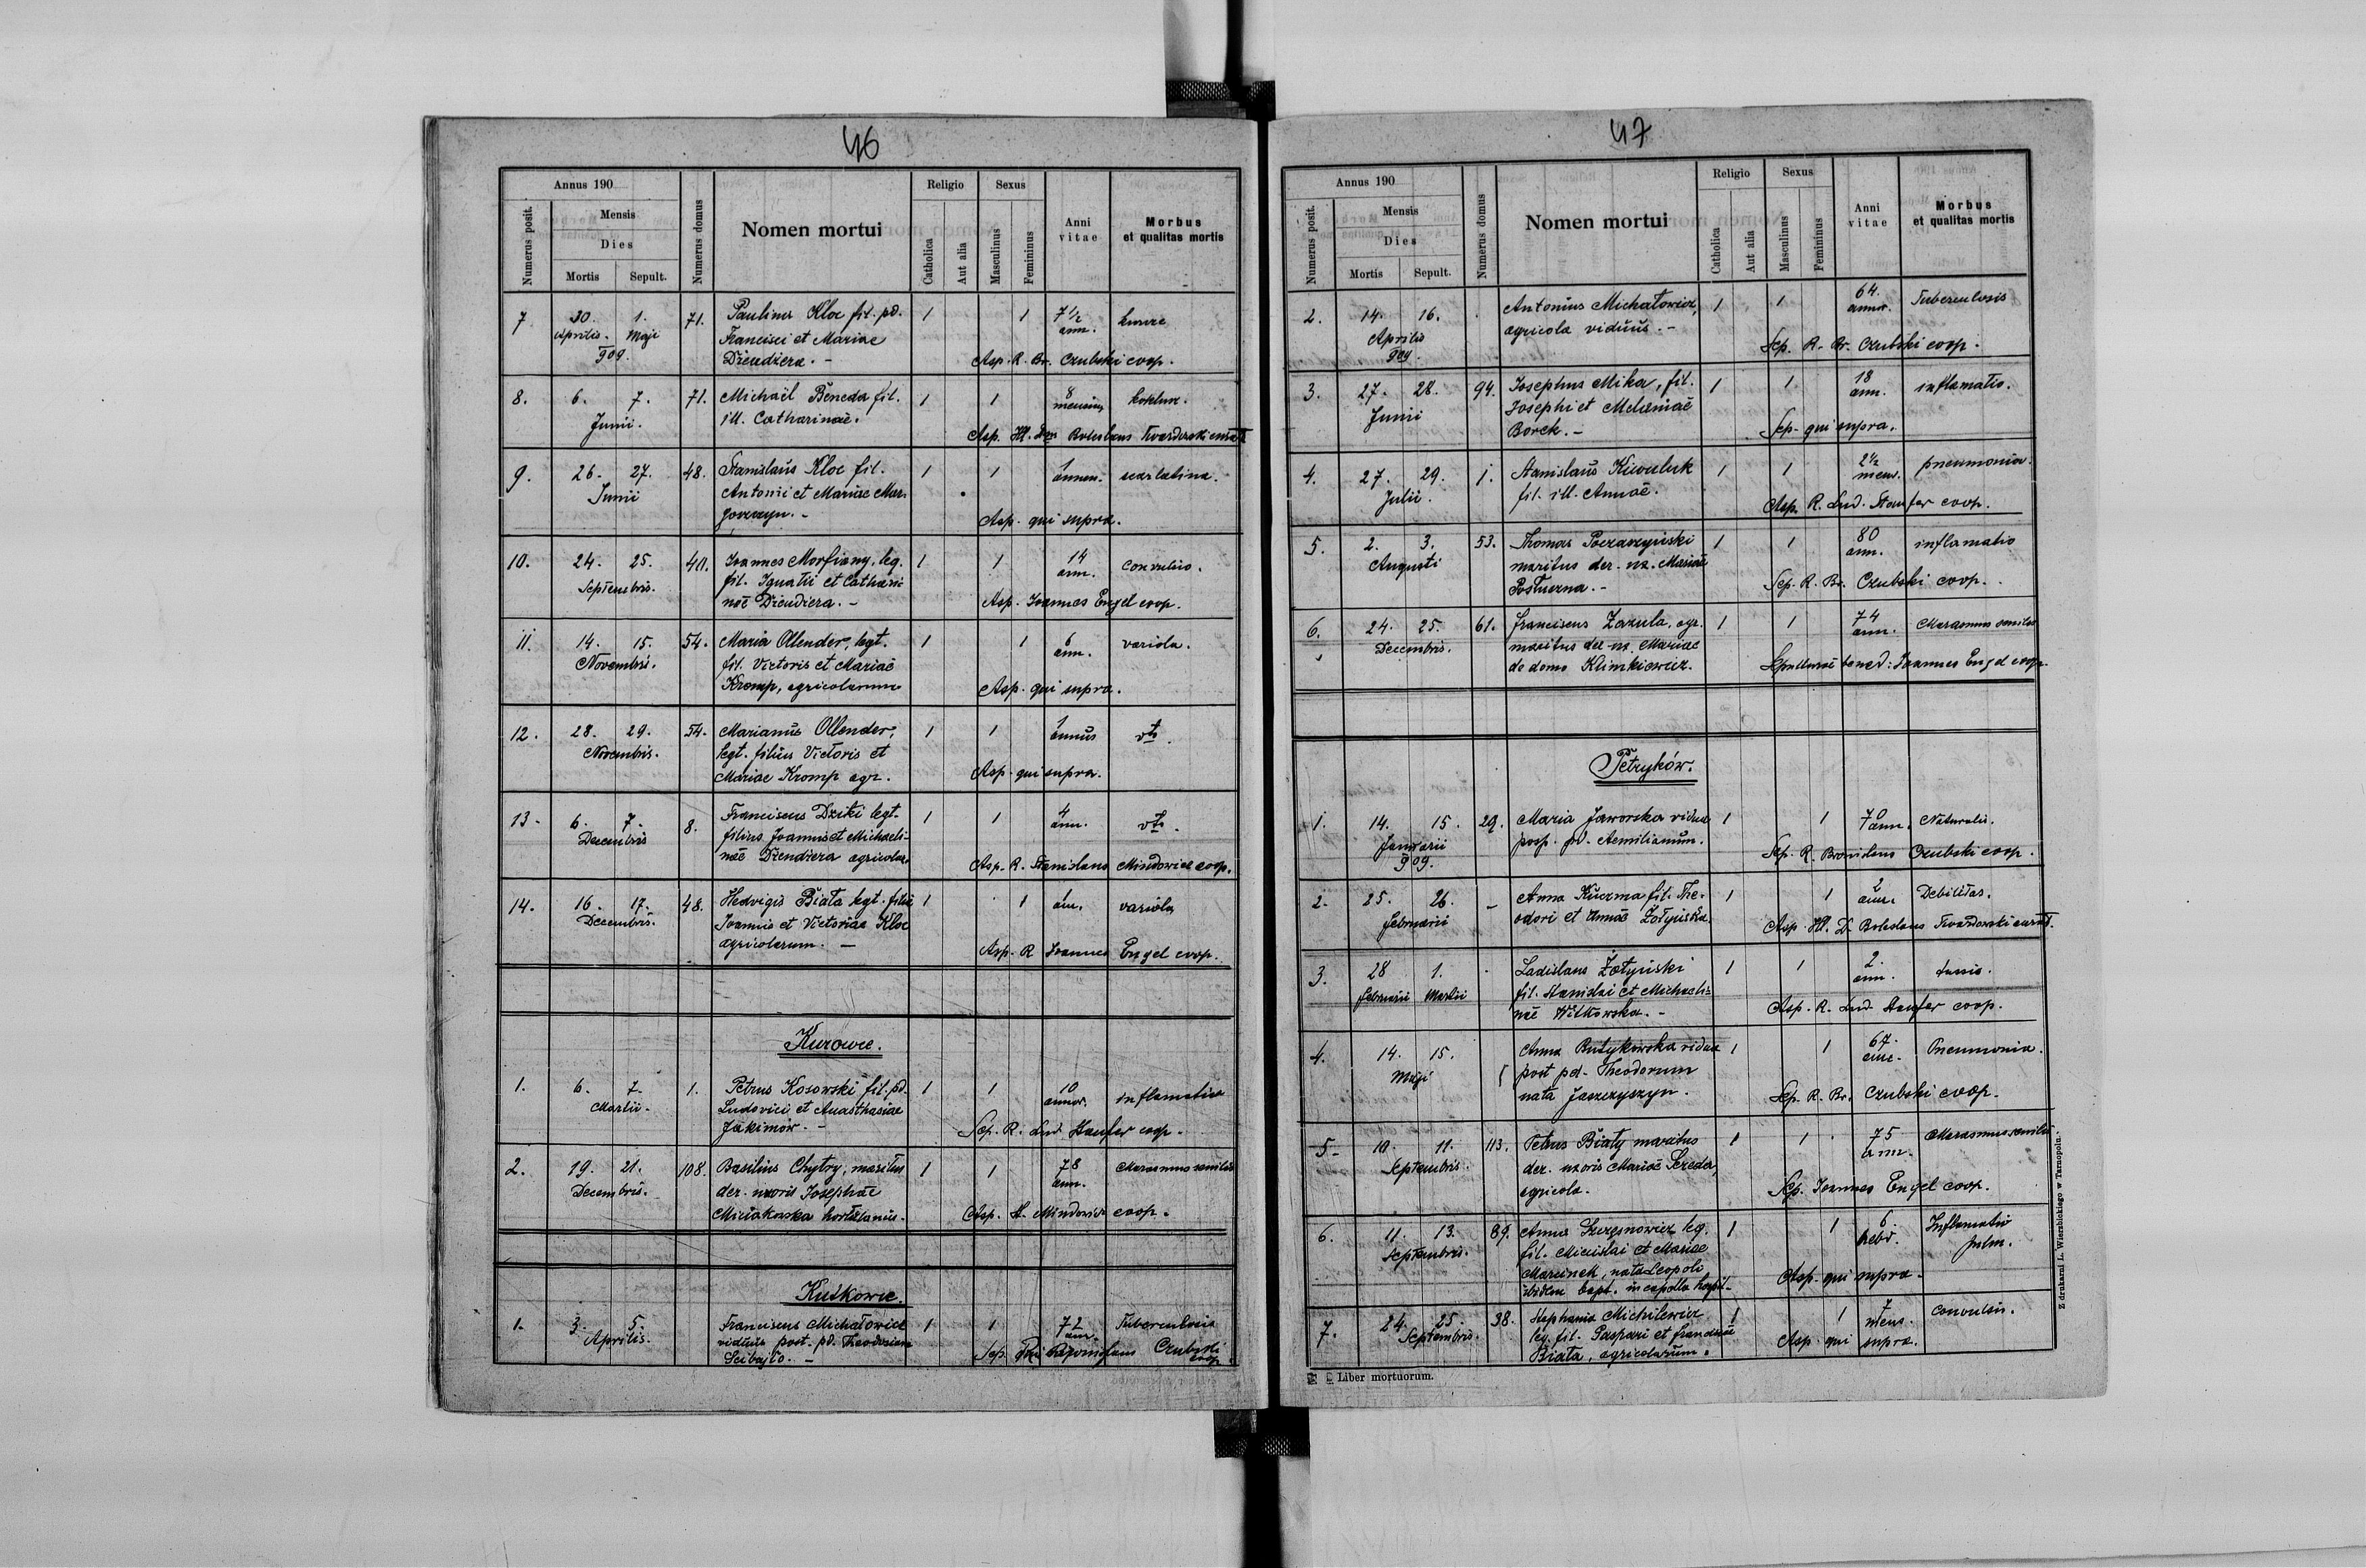 46
Annus 190
Numerus posit.
Mensis
Dies
Mortis Sepult.
Numerus domus
Nomen mortui
Religio
Catholica
Aut alia
Sexus
Masculinus
Femininus
Anni
vitae
Morbus
et qualitas mortis
7 30. 1. 71. Paulina Kloc fil. pd. 1 1 7 1/2
Aprilis. Maji Francisci et Mariae ann.
909. Dziendziera. - Asp. R. Br. Czubski coop.
8. 6. 7. 71. Michaël Beneda fil. 1 1 8
Junii. ill. Catharinae. mensium
Asp. Boleslaus
9. 26. 27. 48. Stanislaus Kloc fil. 1 1 1 scarlatina.
Junii Antonii et Mariae Mar-
Asp. qui supra.
10. 24. 25. 40. Joannes leg. 1 1 14 convulsio.
Septembris. fil. Ignatii et Cathari- ann.
nae Dziendziera. - Asp. Joannes Engel coop.
11. 14. 15. 54. Maria Ollender, legt. 1 1 6 variola.
Novembris. fil. Victoris et Mariae ann.
Kromp, agricolarum Asp. qui supra.
12. 28. 29. 54. Marianus Ollender, 1 1 1 vto.
Novembris. legt. filius Victoris et annus
Mariae Kromp agr. Asp. qui supra.
13. 6. 7. 8. Franciscus Dziki legt. 1 1 4 vto.
Decembris filius Joannis et Michaeli- ann.
nae Dziendziera agricolar. Asp. R. Stanislaus Mindowicz coop.
14. 16. 17. 48. Hedvigis Biała legt. filia 1 1 variola
Decembris. Joannis et Victoriae Kloc
agricolarum. - Asp. R Joannes Engel coop.
Kurowce.
1. 6. 7. 1. Petrus Kosowski fil. pd. 1 1 10
Martii. Ludovici et Anasthasiae annor.
Jakimow. - Sep. R. Lud. coop.
2. 19. 21. 108. Basilius Chytry, maritus 1 1 78 Marasmus senilis
Decembris. der. uxoris Josephae ann.
Asp. St. Mindowicz coop.
Kutkowce.
1. 3. 5. Franciscus Michałowicz 1 1 72 Tuberculosis
Aprilis. viduus post. pd. ann.
Sep. Bronislaus Czubski
coop.
47
Annus 190
Numerus posit.
Mensis
Dies
Mortis Sepult.
Numerus domus
Nomen mortui
Religio
Catholica
Aut alia
Sexus
Masculinus
Femininus
Anni
vitae
Morbus
et qualitas mortis
2. 14. 16. Antonius Michałowicz, 1 1 64. Tuberculosis
Aprilis agricola viduus. - annor.
909. Sep. R. Br. Czubski coop.
3. 27. 28. 94. Josephus Mika, fil. 1 1 18 inflamatio.
Junii Josephi et Melaniae ann.
Borek. - Sep. qui supra.
4. 27. 29. 1. Stanislaus 1 1 2 1/2 pneumonia.
Julii. fil. ill. Annae. mens.
Asp. R. Lud. coop.
5. 2. 3. 53. Thomas 1 1 80 inflamatio
Augusti maritus der. ux. Mariae ann.
Sep. R. Br. Czubski coop.
6. 24. 25. 61. Franciscus Zazula, agr. 1 1 74 Marasmus senilis
Decembris. maritus der. ux. Mariae ann.
de domo Klimkiewicz. Joannes Engel coop.
Petryków.
1. 14. 15. 29. Maria Jaworska vidua 1 1 70 Naturalis.
Januarii posp. pd. Aemilianum. ann.
909. Sep. R. Bronislaus Czubski coop.
2. 25. 26. - Anna Kuzma fil. The- 1 1 2 Debilitas.
Februarii odori et Annae Żołyńska. ann.
Asp. Boleslaus Twardowski
3. 28 1. Ladislaus Żołyński 1 1 2. tussis.
Februarii Martii fil. Stanislai et Michaeli- ann.
nae Witkowska. - Asp. R. Lud. coop.
4. 14. 15. Anna vidua 1 1 67. Pneumonia.
Maji post pd. Theodorum ann.
nata Jaszczyszyn. Sep. R. Br. Czubski coop.
5. 10. 11. 113. Petrus Biały maritus 1 1 75 Marasmus senilis
Septembris. der. uxoris Mariae Szreder, ann.
agricola. Sep. Joannes Engel coop.
6. 11. 13. 89. Anna leg. 1 1 6 Inflamatio
Septembris. fil. Miecislai et Mariae hebd. pulm.
Marcinek, nata Leopoli Asp. qui supra.
ibidem bapt. in capella hospit.
7. 24. 25. 38. Stephania Michalewicz 1 1 7 Convulsis.
Septembris. leg. fil. Gaspari et Franciscae mens.
Biała, agricolarum. Asp. qui supra.
Liber mortuorum.
Z drukarni L. Wierzbickiego w Tarnopolu.